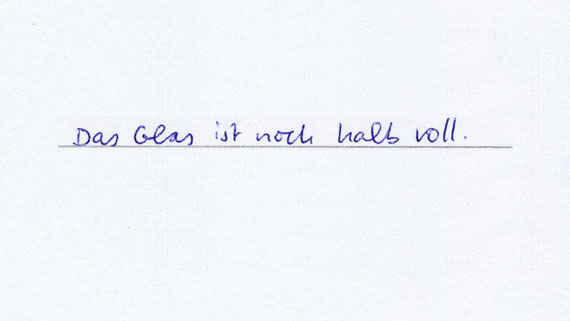 Das Glas ist noch halb voll.